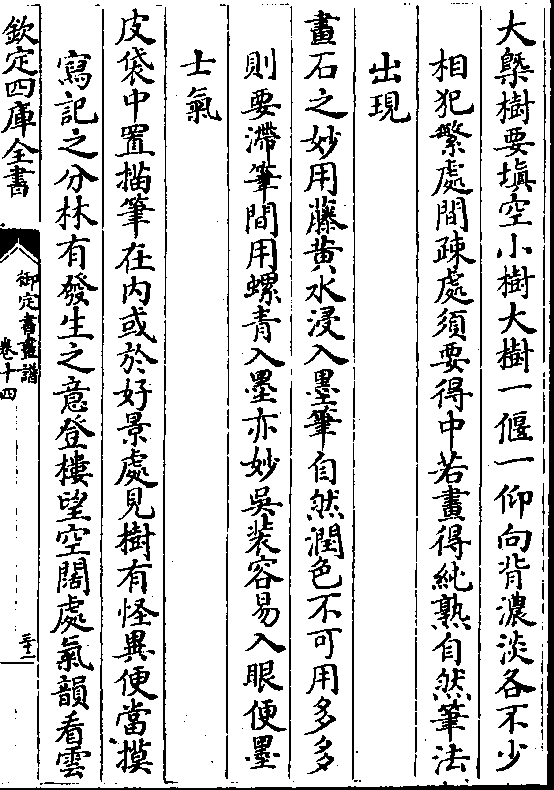 大槩樹要填空小樹大樹一偃一仰向背濃淡各不少
相犯繁處間疎處須要得中若畫得純熟自然筆法
出現
畫石之妙用藤黄水浸入墨筆自然潤色不可用多多
則要滯筆間用螺青入墨亦妙吳装容易入眼便墨
士氣
皮袋中置描筆在内或於好景處見樹有怪異便當摸
寫記之分林有發生之意登樓望空闊處氣韻看雲
欽定四庫全書
御定書畫譜
卷十四
三十二